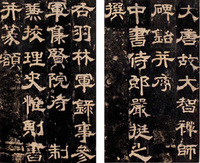 大唐故大智禪師
碑銘并序
中書侍郎嚴挺之
撰
右羽林軍錄事參
軍集賢院待制
兼校理史惟則書
并篆額